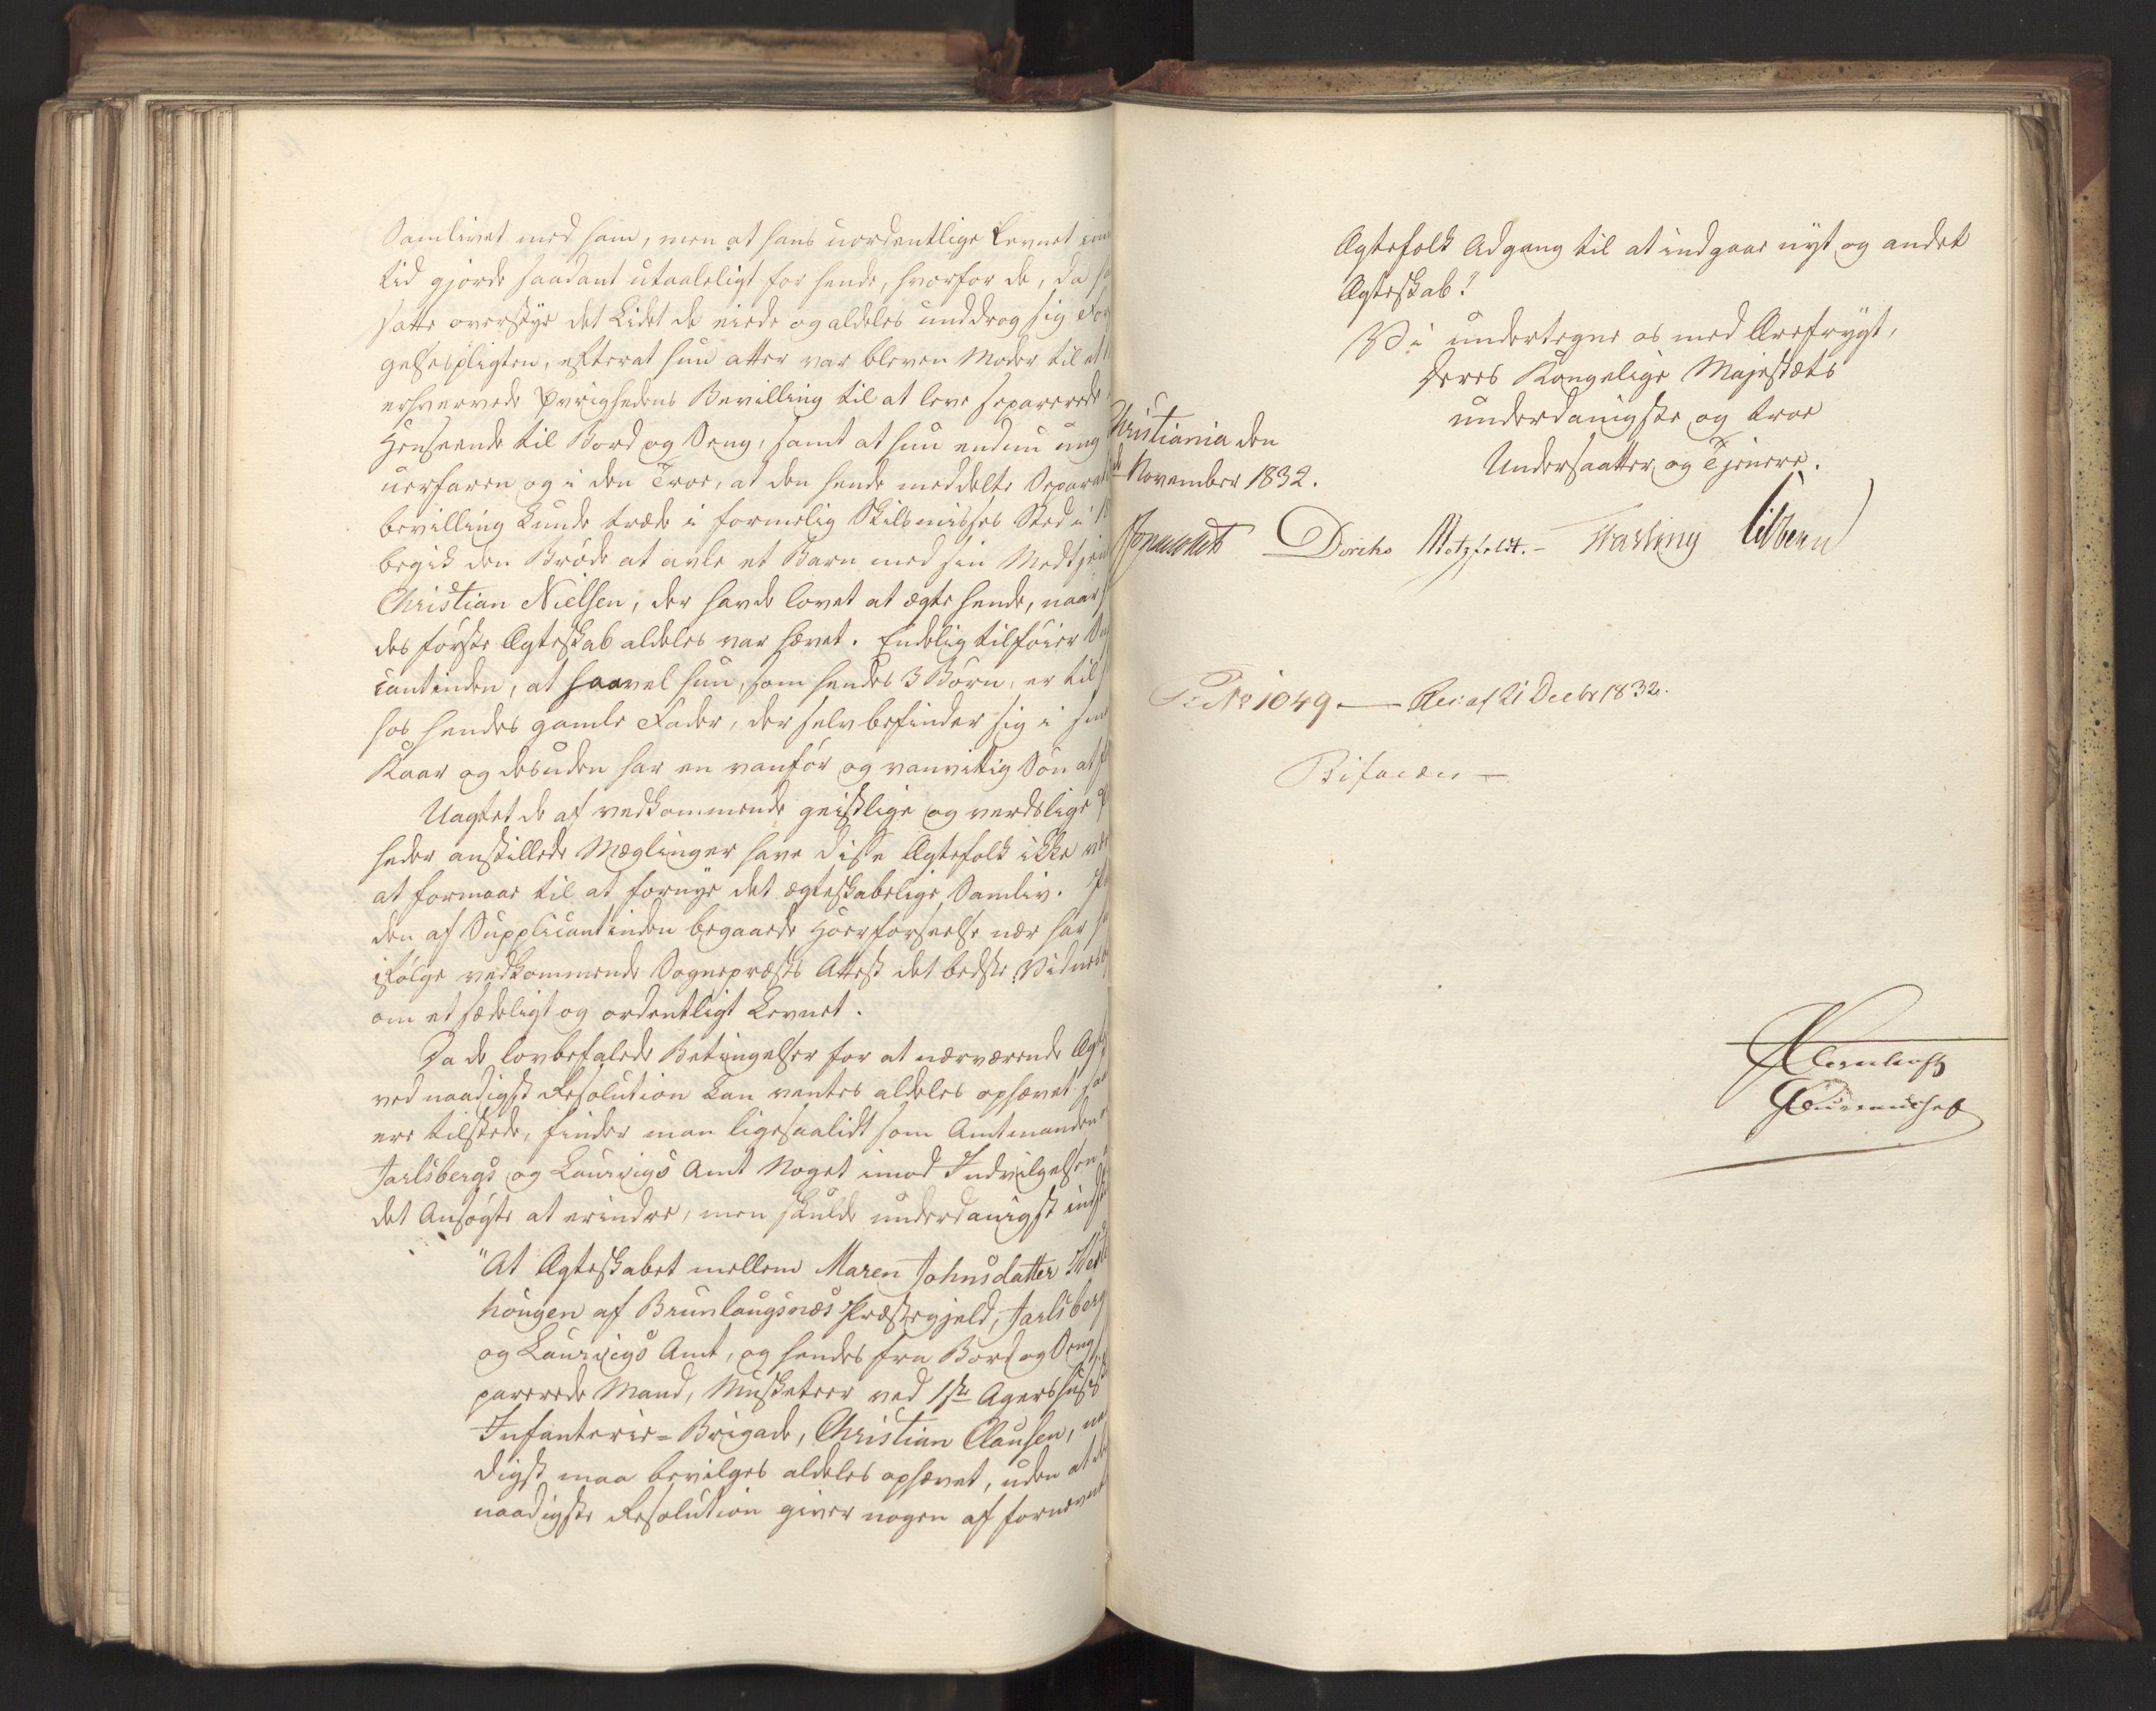 Samlivet med ham, men at hans uordentlige Levnet
tid gjorde saadant utaaleligt for hende, hvorfor de, da
satte overstyr det Lidet de eiede og aldeles unddrog sig For
gelsespligten, efterat hun atter var bleven Moder til et
erhvervede Øvrighedens Bevilling til at leve separerede
Henseende til Bord og Seng, samt at hun endnu ung
uerfaren og i den Troe, at den hende meddelte Separat
bevilling kunde træde i formelig Skilsmisses Sted i
begik den Brøde at avle et Barn med sin Medtjen
Christian Nielsen, der havde lovet at ægte hende, naar
des første Ægteskab aldeles var hævet. Endelig tilføier Sup
cantinden, at saavel hun, som hendes 3 Børn, er til
hos hendes gamle Fader, der selv befinder sig i
Kaar og desuden har en vanfør og vanvittig Søn at
Uagtet de af vedkommende geistlige og verdslige
heder anstillede Mæglinger have disse Ægtefolk ikke
at formaae til at fornye det ægteskabelige Samliv.
den af Supplicantinden begaaede Hoerforseelse nær har
ifølge vedkommende Sognepræsts Attest det bedste Vidnesb
om et sædeligt og ordentligt Levnet.
Da de lovbefalede Betingelser for at nærværende Ægt
ved naadigst Resolution kan ventes aldeles ophævet
ere tilstede, finder man ligesaalidt som Amtmanden
Jarlsbergs og Laurvigs Amt Noget imod Indvilgelsen
det Ansøgte at erindre, men skulde underdanigst indst
"At Ægteskabet mellem Maren Johnsdatter
höugen af Brunlaugsnæs Præstegjeld, Jarlsberg
og Laurvigs Amt, og hendes fra Bord og Seng
parerede Mand, Musketeer ved 1ste Agershusiske
Infanterie-Brigade, Christian Clausen, naa
digst maa bevilges aldeles ophævet, uden at
naadigste Resolution giver nogen af fornævnte
Ægtefolk Adgang til at indgaae nyt og andet
Ægteskab."
Vi undertegne os med Ærefrygt,
Deres Kongelige Majestæts
underdanigste og troe
Undersaatter og Tjenere.
Christiania den
November 1832.
Diriks Motzfeldt. Fasting Sibbern
No 1049. — Res: af 21 Decbr 1832.
Bifaldes —